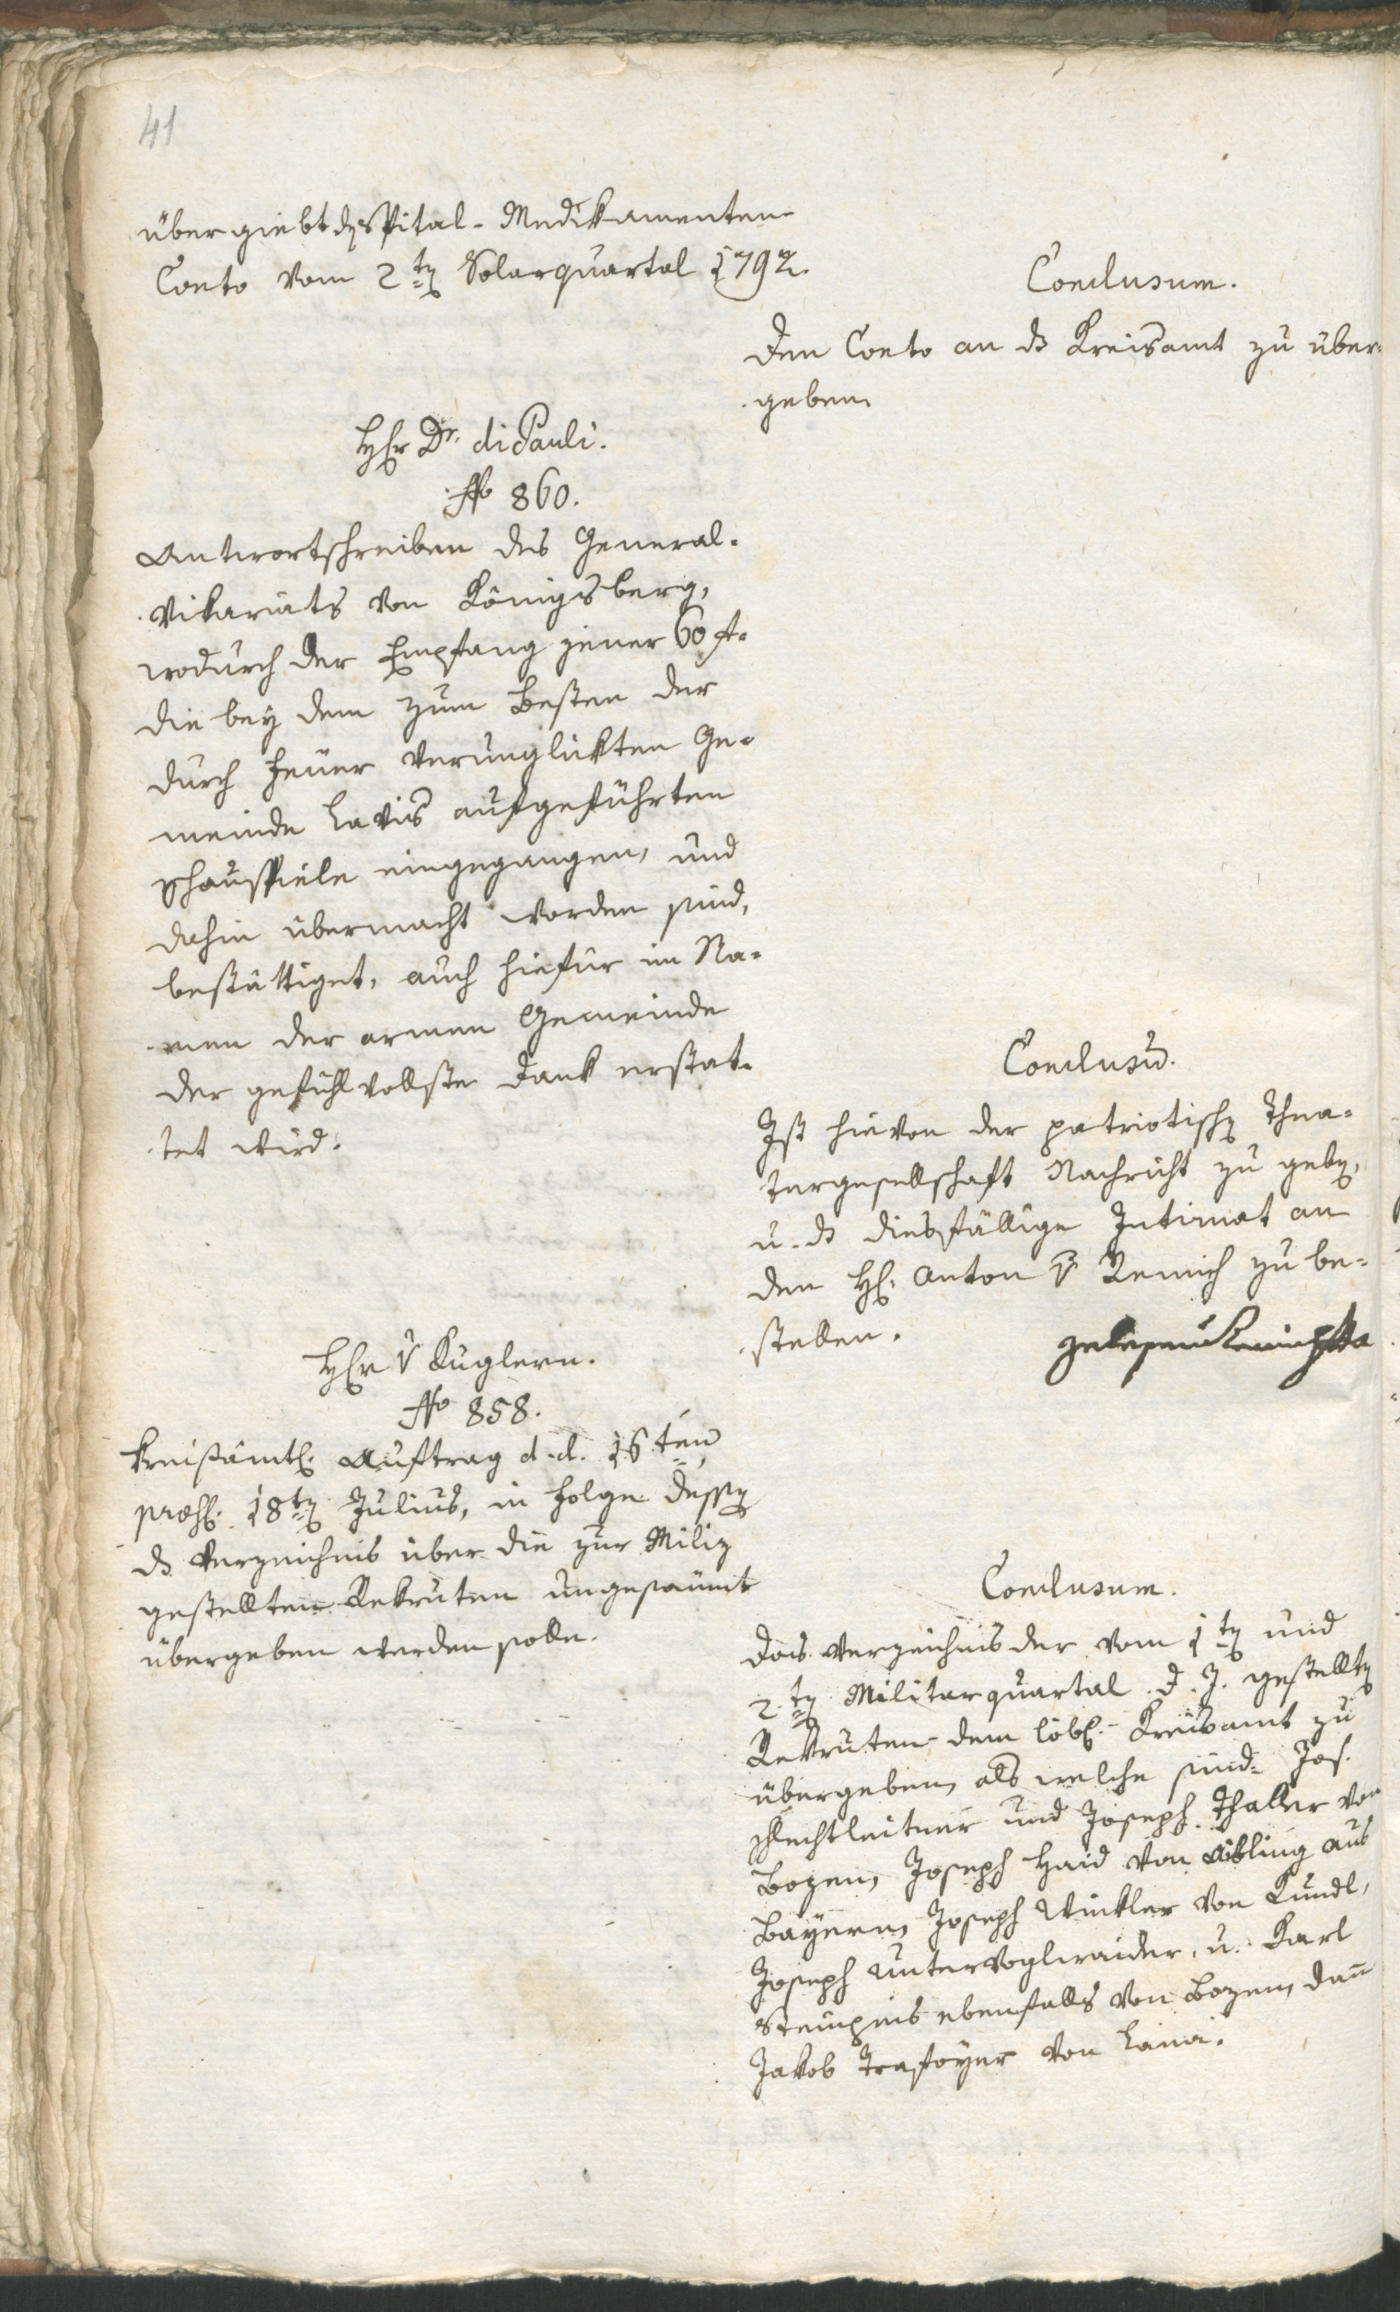 41
übergiebt den Spital-Medikamenten
Conto vom 2ten Solarquartal 1792.
Conclusum.
Den Conto an das Kreisamt zu über-
geben
Herr Dr. di Pauli.
No 860.
Antwortschreiben des General-
Vikariats von Königsberg,
wodurch der Empfang jener 60 f.
die bey dem zum Besten der
durch Feuer verunglükten Ge-
meinde Lavis aufgeführten
Schauspiele eingegangen, und
dahin übermacht worden sind,
bestättiget, auch hiefür im Na-
men der armen Gemeinde
der gefühlvollste Dank erstat-
tet wird.
Conclusum.
Ist hievon der patriotischen Thea-
tergesellschaft Nachricht zu geben,
u. das diesfällige Intimat an
den H. Anton v Remich zu be-
stellen.
gelesen
Herr v Kuglern.
No 858.
Kreisämtl. Auftrag d. d. 16ten
præs. 18ten Julius, in Folge dessen
das Verzeichnis über die zur Miliz
gestellten Rekruten ungesäumt
übergeben werden solle.
Conclusum.
Das Verzeichnis der vom 1ten und
2ten Militarquartal d. J. gestellten
Rekruten dem löbl. Kreisamt zu
übergeben, als welche sind: Jos.
Schlechtleitner und Joseph Thaller von
Bozen, Joseph Haid von Aibling aus
Bayern, Joseph Winkler von Kundl,
Joseph Untervoglraider, u. Karl
ebenfalls von Bozen, dann
Jakob Trafoyer von Lana.